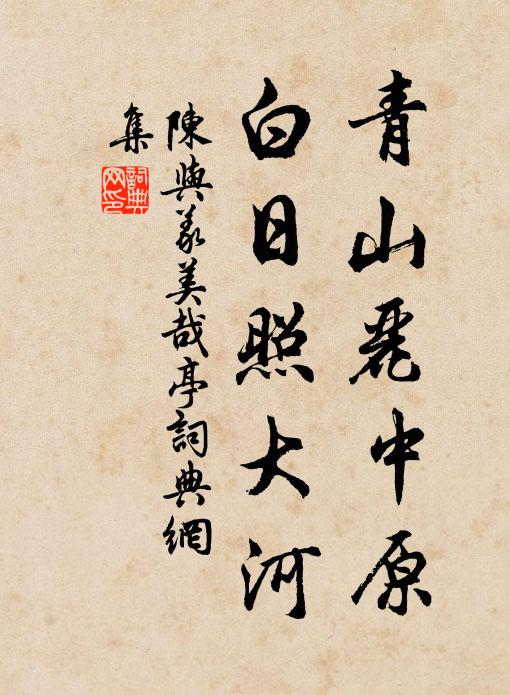 青山麗中原
白日照大河
陳與義美哉亭詞典網
集
詞典网印